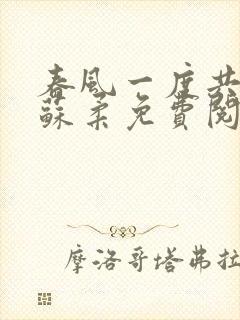 春風一度共
蘇柔免費閱
摩洛哥塔弗拉